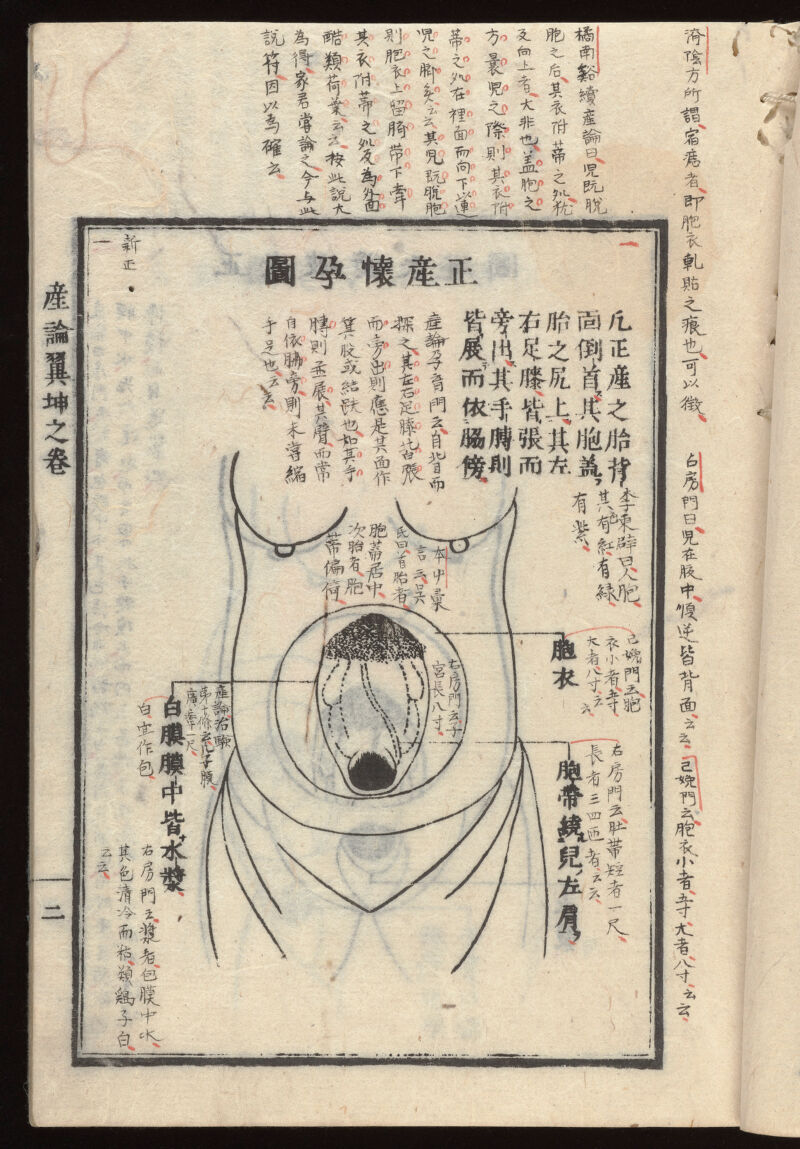 済陰方所謂宿痣者即胞衣乹貼之痕也可以徴
白房門曰児在腹中順逆皆背面云云己婉門云胞衣小者五寸大者八寸云云
橘南谿續産論曰児既脱
胞之后其衣附蒂之処枕
又向上者大非也盖胞之
方裹児之際則其衣附
蒂之処在裡面而向下以連
児之臍矣云云其児既脱胞
則胞衣上留臍帯下牽
其衣附蒂之処反為外面
酷類荷葉云云按此説大
為得家君嘗論之今与此
説符因以為確云
正産懷孕圖
凡正産之胎背
面倒首其胞蓋
胎之尻上其左
右足膝皆張而
旁出其手膊則
皆展而依脇傍
産論孕育門云自背而
探之其左右足膝皆張
而旁出則應是其面作
箕股或結趺也如其手
膊則孟展其臂而常
自依脇旁則未嘗縮
手足也云云
新正
一
李東辟曰人胞
其有紅有緑
有紫
本中彙
言云吴
氏曰首胎者
胞蒂居中
次胎者胞
蒂偏荷
胞衣
己婉門云胞
衣小者五寸
大者八寸云云
右房門云子
宮長八寸
胞帶繞兒左肩
右房門云肚帯短者一尺
長者三四匝者云云
産論治験
第十條云孔子膜
廣牽一尺
白膜膜中皆水漿
白宜作包
右房門云漿者包膜中水
其色清冷而粘類鶏子白
云云
産論翼坤之卷
二